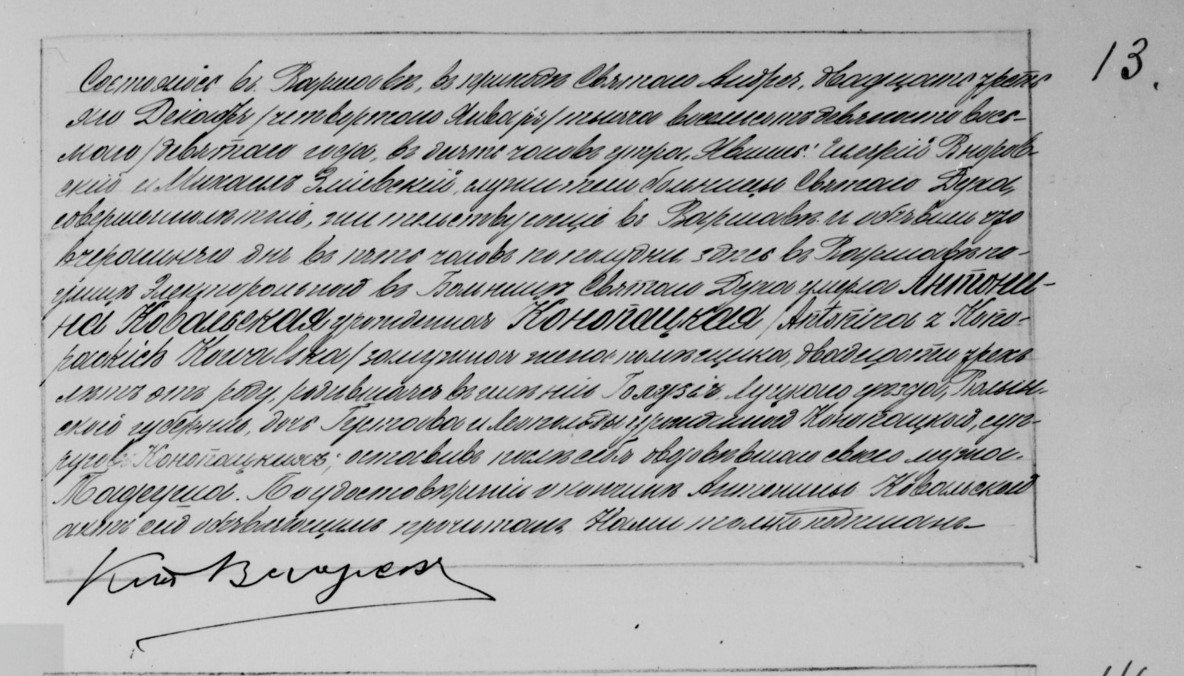 13.
Состоялось въ Варшавѣ, въ приходѣ Святаго Андрея, двадцать треть-
яго Декабря /четвертаго Января/ тысяча восемьсотъ девяносто вось-
маго /девятаго года, въ часовъ утра, Явились: Вноров-
скій и Михаилъ служители больницы Святаго Духа,
совершеннолѣтніе, жительствующіе въ Варшавѣ и объявили что
вчерашняго дня въ пять часовъ по полудни здѣсь въ Варшавѣ по
улицѣ Электоральной въ Больницѣ Святаго Духа умерла Антони-
на Ковальская урожденная Конопацкая /Antonina z Kono-
packich Kowalska/ замужняя жена помѣщика, двадцати трехъ
лѣтъ отъ роду, родившаяся въ имѣніи Луцкаго уѣзда, Волын-
ской губерніи, дочь и Леопольды урожденной Конопацкой, суп-
руговъ Конопацкихъ; оставивъ послѣ себя овдовѣвшаго своего мужа
По удостовѣреніи о кончинѣ Антонины Ковальской
актъ сей объявляющимъ прочитанъ, Нами только подписанъ